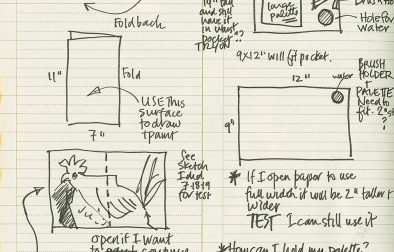 Fold back
11"
Fold
USE this
surface
to draw
+ paint
7"
See
sketch
I did
7.18.19
for test
open if I want
19" tall
and still
have it
in what
pocket
??
large
palette
Hole for
water
9x12" will fit pocket.
12"
water
BRUSH
HOLDER
+
PALETTE
Need to
fit.
?
9"
* If I open paper to use
full width it will be 2" taller +
wider
TEST I can still use it
* How can I hold my palette?